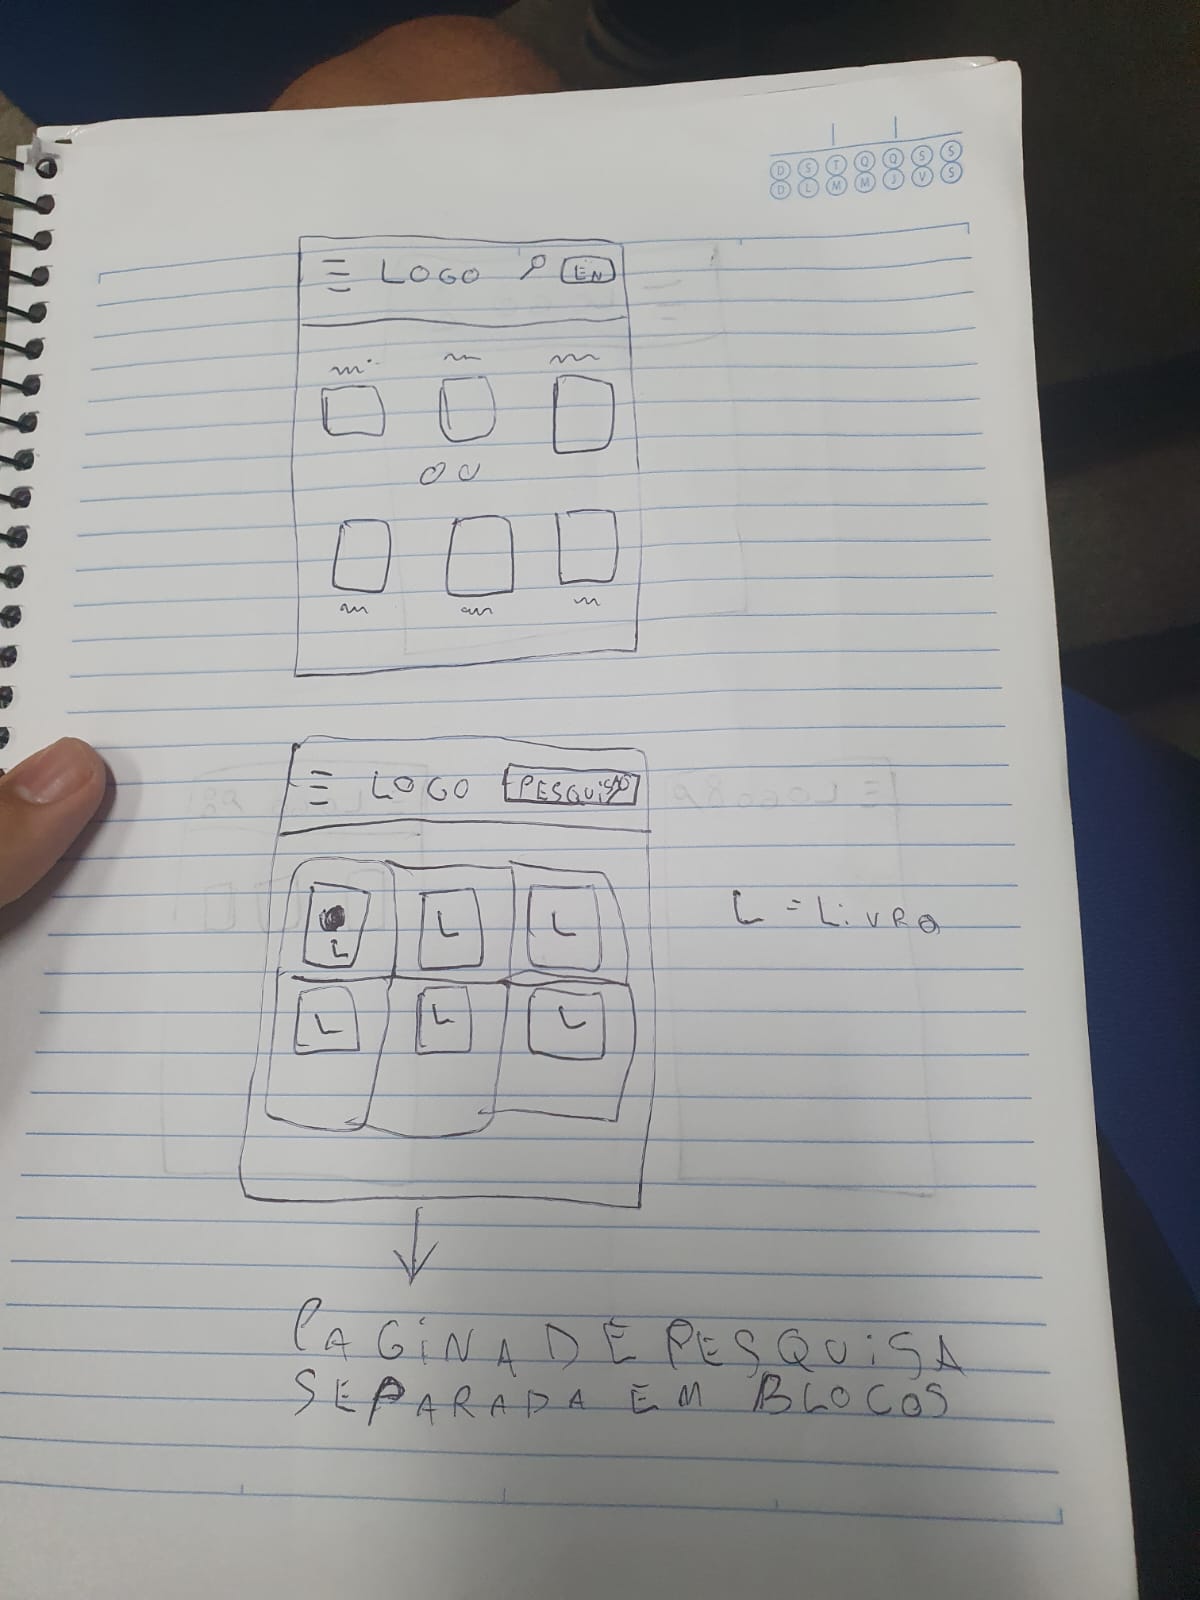 D S T Q Q S S
D L M M J V S
LOGO EN
OU
LOGO PESQUISAS
L L L
L L L
L = LIVRO
PAGINA DE PESQUISA
SEPARADA EM BLOCOS